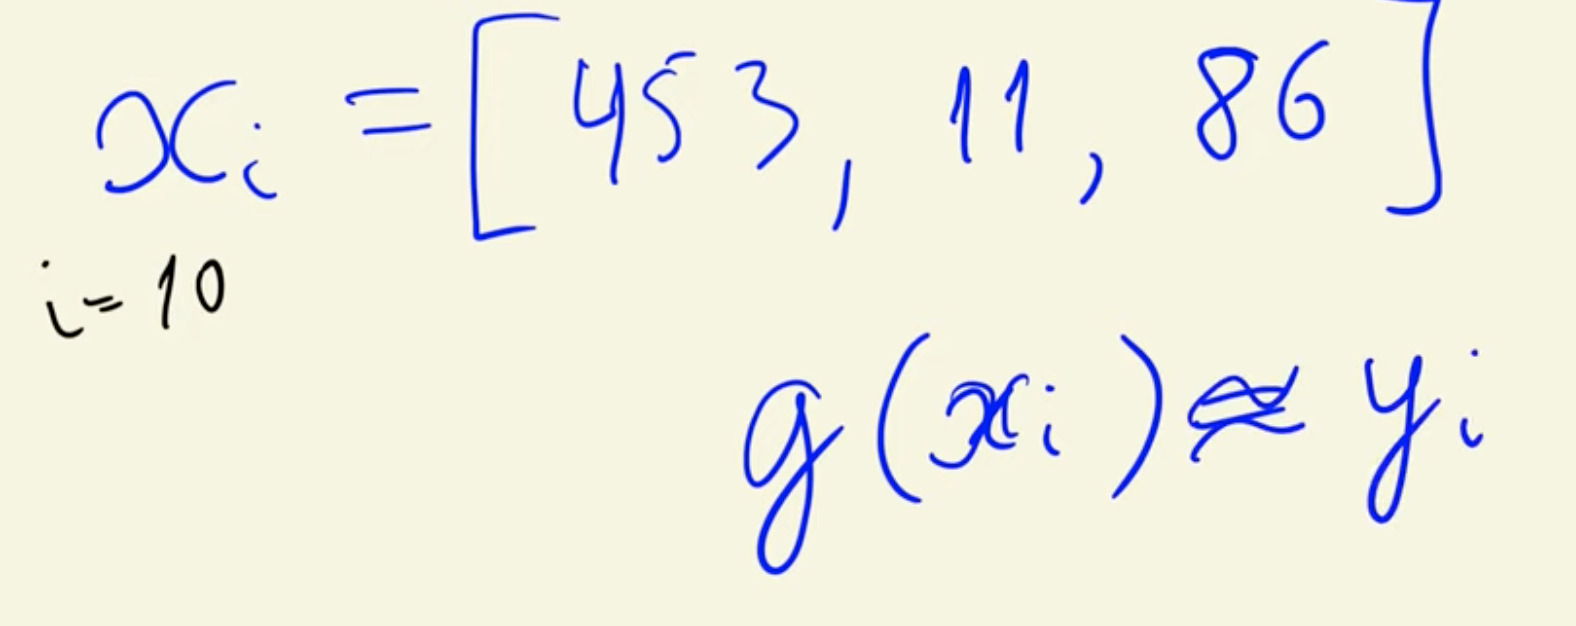 xᵢ = [453, 11, 86]
i = 10
g(xᵢ) ≈ yᵢ